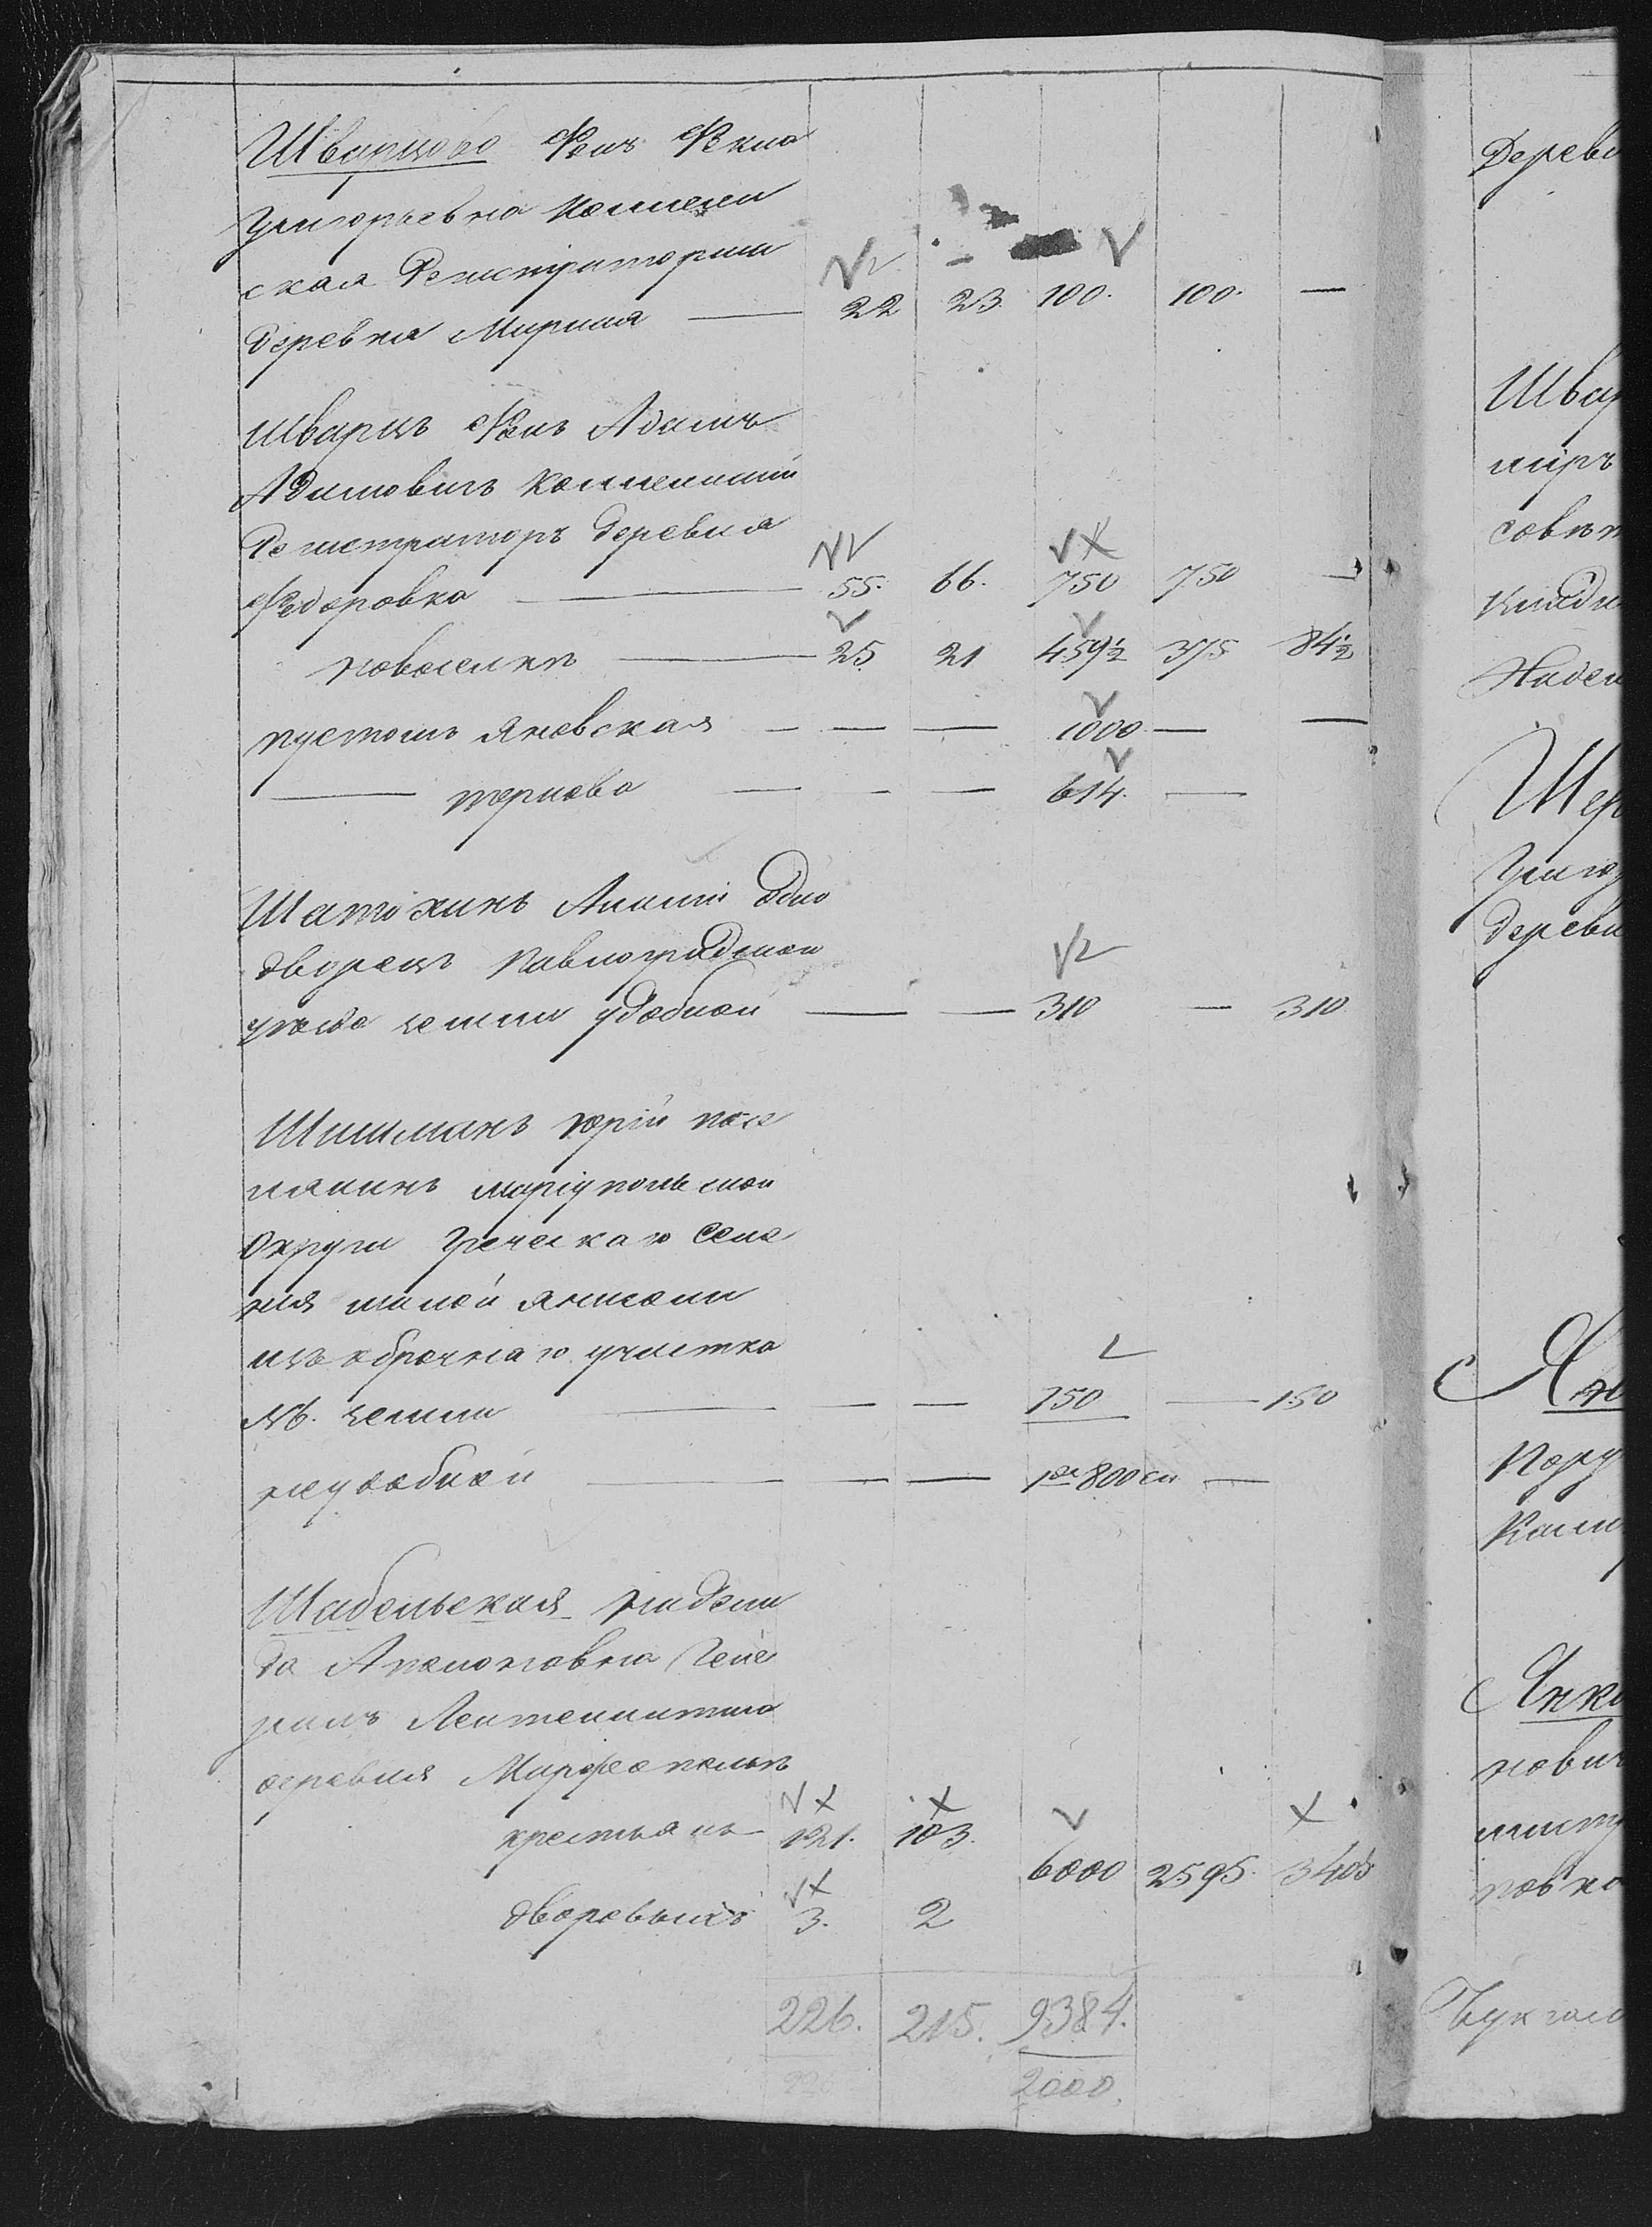 Шварцова Фонъ Фекла
Григорьевна Коллежс
ская Регистраторша
деревня Марина — 22 23 100. 100. —
Шварцъ Фонъ Адамъ
Адамовичъ Коллежскій
Регистраторъ деревня
Федоровка — 55. 66. 750 750 —
Новоселки — 25 21 459½ 375 84½
пустошь Яновская — — — 1000 — —
— тернова — — — 614. —
Шатохинъ Одно
дворецъ Павлоградской
уезда земли удобной — — 310 — 310
Шишманъ Юрій посе
лянинъ маріупольской
Округи Греческаго Селе
нія малой Янисоли
изъ оброчнаго участка
№6. земли — — — 150 — 150
неудобной — — — 1де 800 са —
Шабельская Надеж
да Апполоновна Гене
ралъ Лейтенантша
деревня Марфополь
крестьянъ — 121. 103.
6000 2595. 3405
дворовыхъ 3. 2
226. 215. 9384.
2000.
Деревн
Швар
міръ
совѣт
Надеж
Шер
Григор
деревн
Ян
Пору
Янко
новичъ